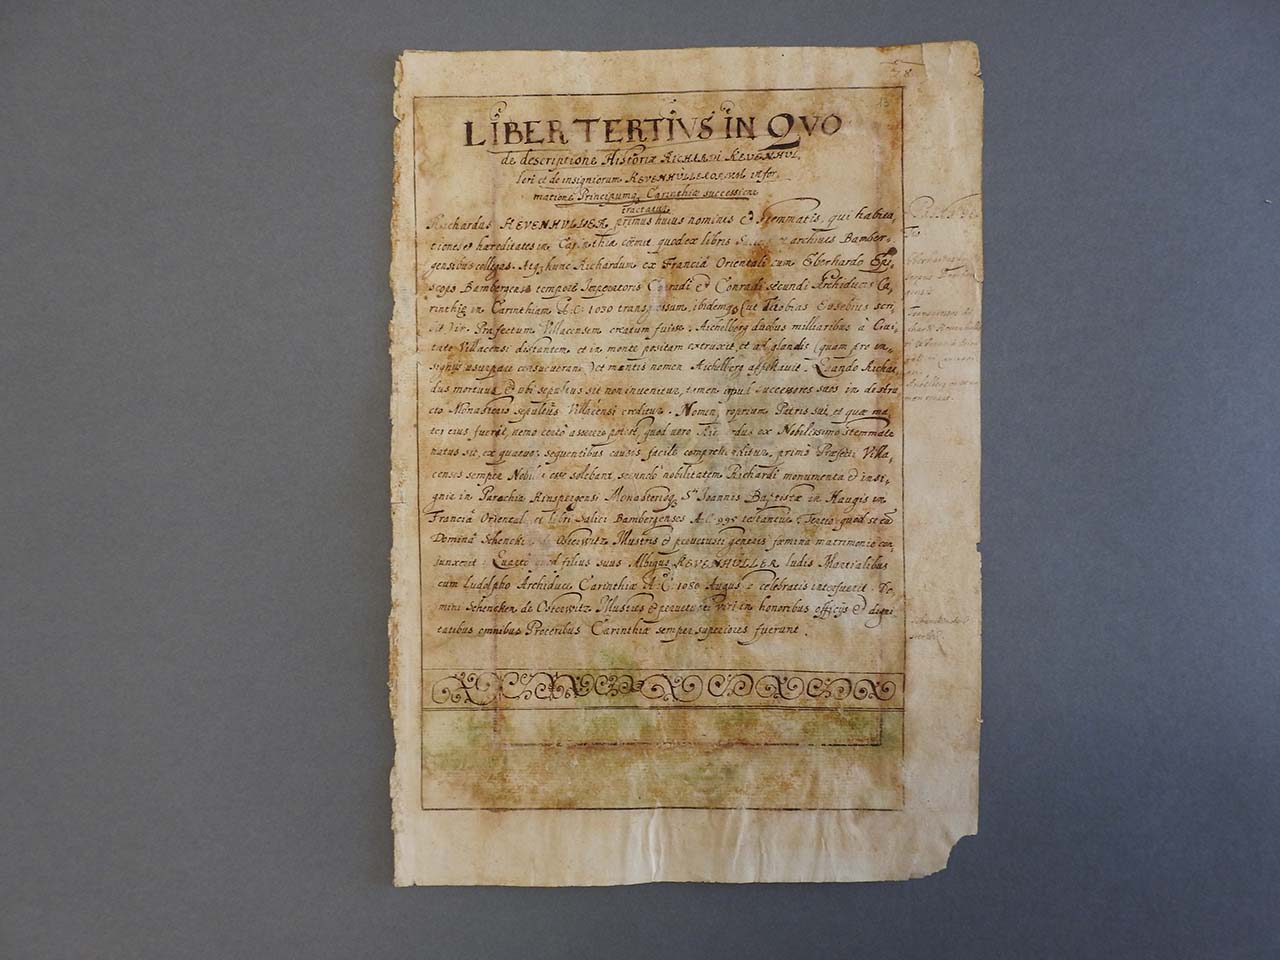 LIBER TERTIVS IN QVO
de descriptione Historiæ RICHARDI KEVENHVL,
leri et de insigniorum KEVENHÜLLEROrum infor,
matione Principumq Carinthiæ successione
tractatur
Richardus KEVENHVLLER, primus huius nominis & Stemmatis, qui habita,
tiones & hæreditates in Carinthia coëmit, quod ex libris archiuis Bamber,
gensibus colligas. Atq hunc Richardum ex Franciâ Orientali cum Eberhardo Epi,
scopo Bambergense tempore Imperatoris Conradi & Conradi secundi Archiducis Ca,
rinthiæ in Carinthiam A. C. 1030 transgressum, ibidemq (ut Thobias Eusebius scri,
bit) in Præfectum Villacensem creatum fuisse. Aichelberg duobus milliaribus à Ciui,
tate Villacensi distantem et in monte positam extruxit, et ab glandis (quam pro in,
signijs usurpare consueuerant) et montis nomen Aichelberg assertauit. Quando Richar,
dus mortuus & ubi sepultus sit non inuenitur, tamen apud successores suos in destru,
cto Monasterio sepultus Villacensi creditur. Nomen proprium Patris sui, et quæ ma,
ter eius fuerit, nemo certò asserere potest, quod uero Richardus ex Nobilissimo stemmate
natus sit, ex quatuor sequentibus causis facile comprehenditur, primò Præfecti Villa,
censes semper Nobiles esse solebant, secundò nobilitatem Richardi monumenta & insi,
gnia in Parochia Kinspergensi Monasterioq S. Ioannis Baptistæ in Haugis in
Franciâ Orientali et libri Salici Bambergenses A. C. 995 testantur. Tertiò quod se cũ
Dominâ Schenckin de Osterwitz Illustris & peruetusti generis fœmina matrimonio con,
iunxerit. Quartò quod filius suus Albigus KEVENHÜLLER ludis Martialibus
cum Ludolpho Archiduci Carinthiæ A. C. 1080 Augustæ celebratis interfuerit. Do,
mini Schencken de Osterwitz Illustres & peruetusti viri in honoribus officijs & digni,
tatibus omnibus Proceribus Carinthiæ semper superiores fuerunt.